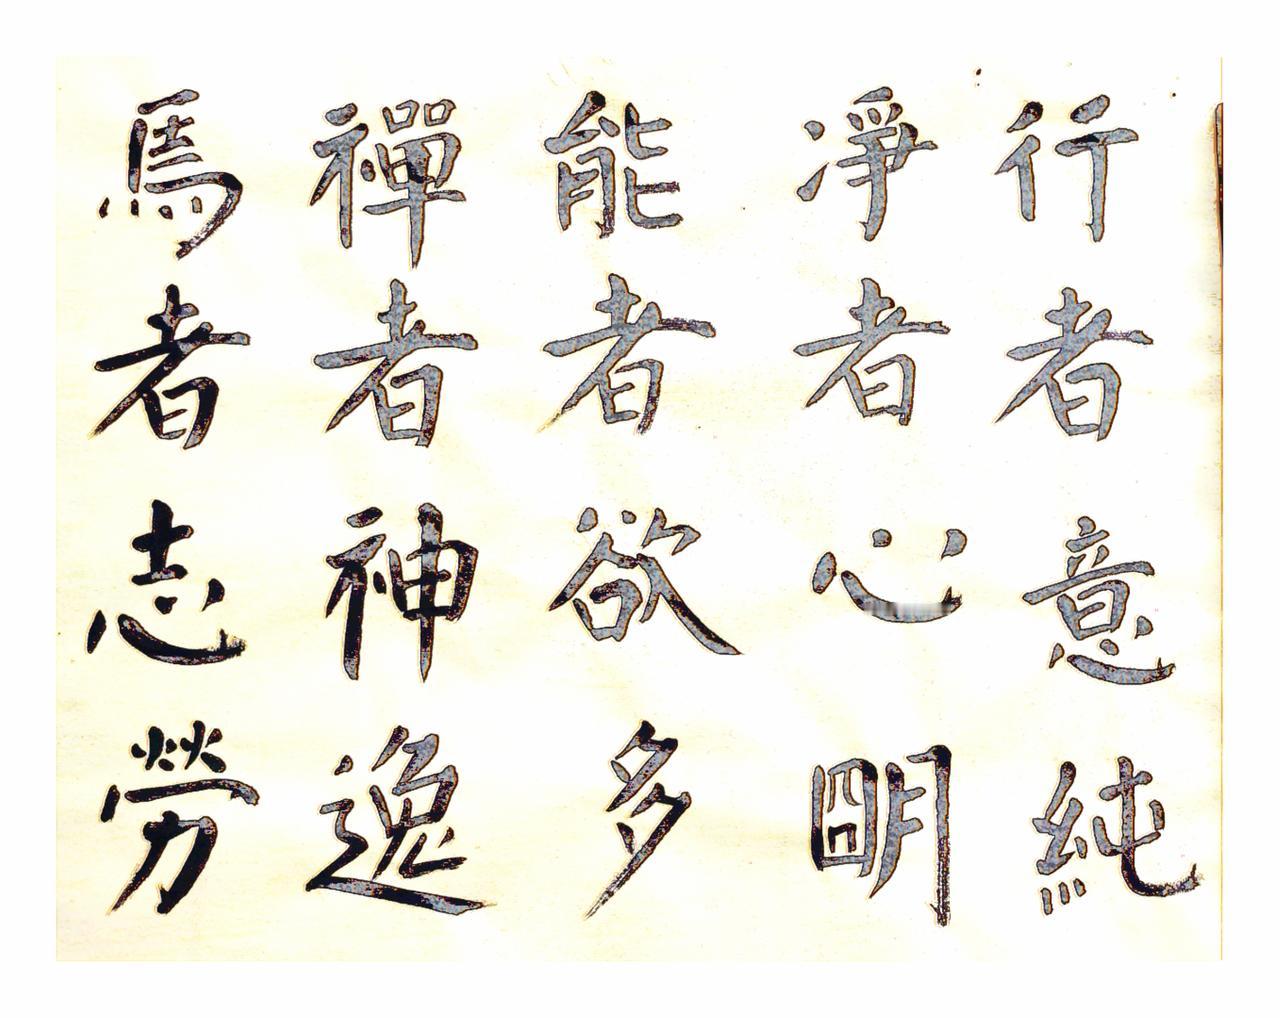 行者意純
淨者心明
能者欲多
禪者神逸
馬者志勞